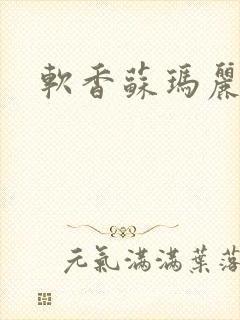 軟香蘇瑪麗
元氣滿滿葉落